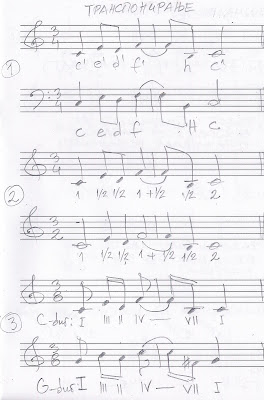 ТРАНСПОНИРАЊЕ
1
3 4
c' e' d' f' h c'
3 4
c e d f H c
2
3 4
1 1/2 1/2 1 + 1/2 1/2 2
3 2
1 1/2 1/2 1 + 1/2 1/2 2
3
3 8
C-dur: I III II IV — VII I
3 8
G-dur I III II IV — VII I